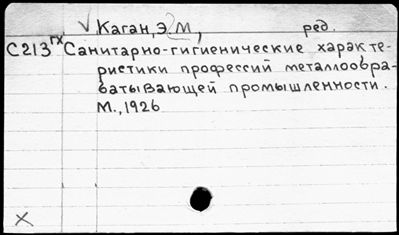 √ Каган, Э. М., ред.
С213гх Санитарно-гигиенические характе-
ристики профессий металлообра-
батывающей промышленности.
М., 1926
X